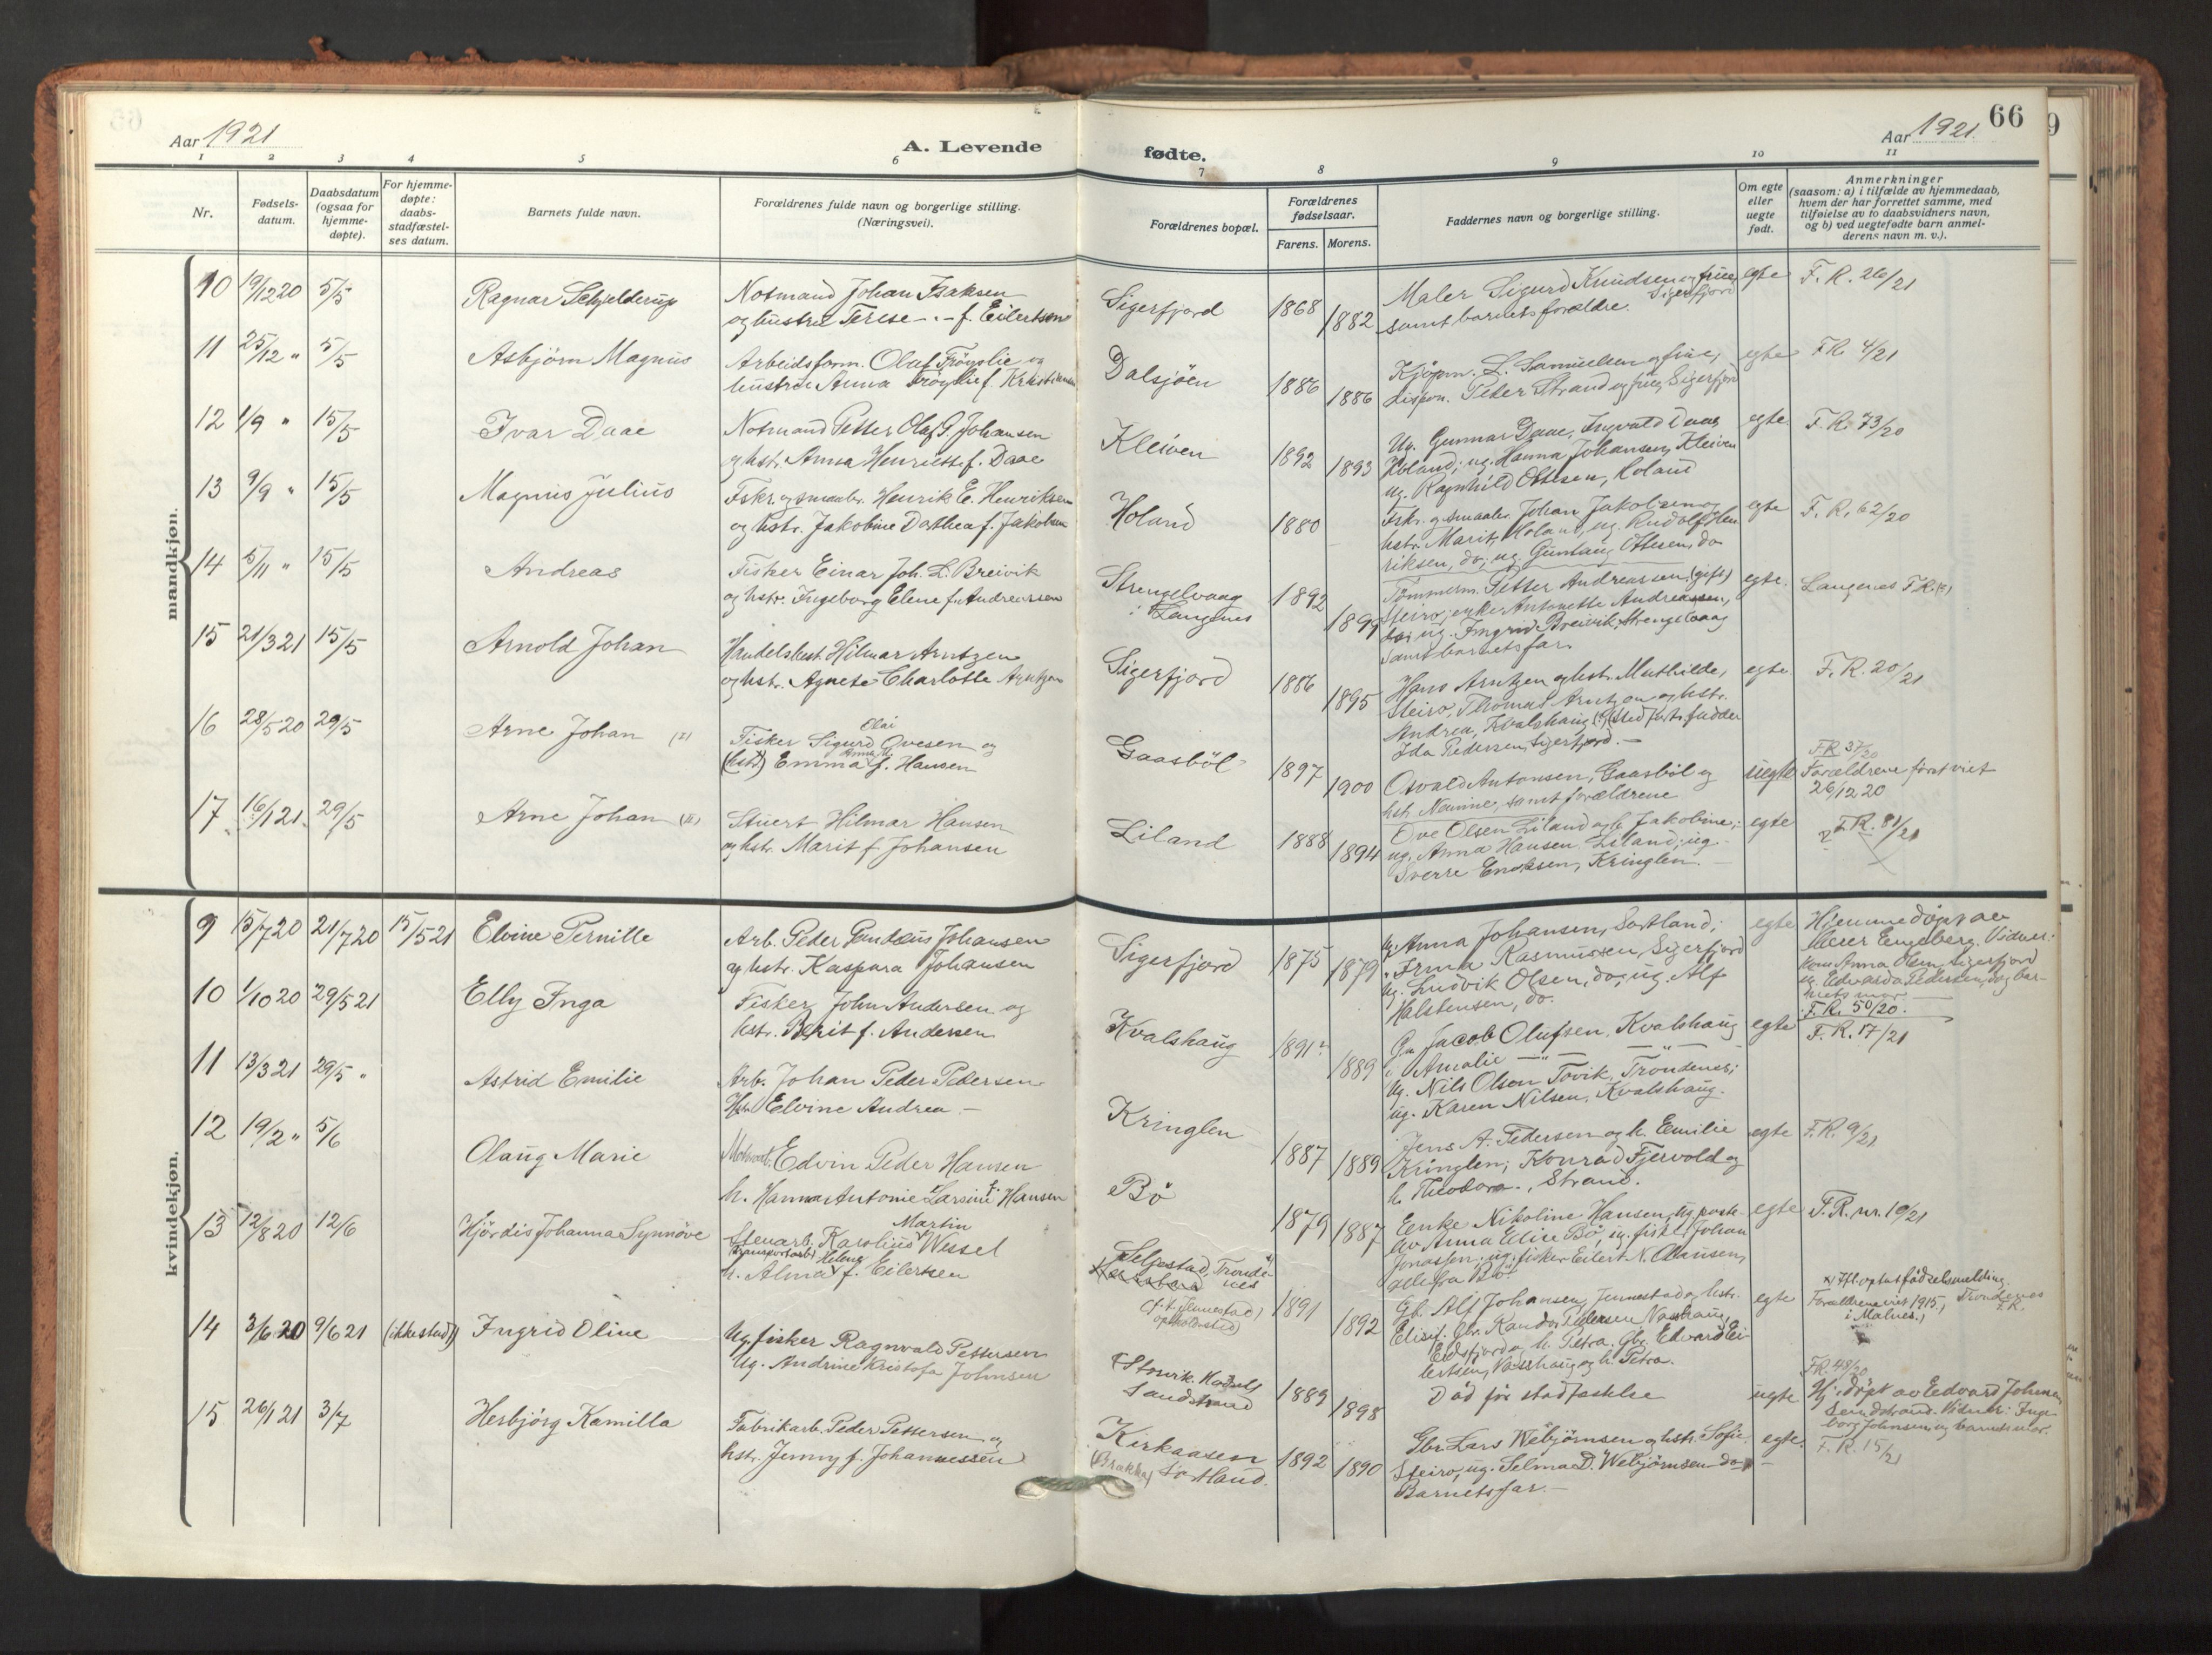 Aar 1921
A. Levende
fødte.
Aar 1921.
66
1 2 3 4 5 6 7 8 9 10 11
Nr.
Fødsels-
datum.
Daabsdatum
(ogsaa for
hjemme-
døpte).
For hjemme-
døpte:
daabs-
stadfæstel-
ses datum.
Barnets fulde navn.
Forældrenes fulde navn og borgerlige stilling.
(Næringsvei).
Forældrenes bopæl.
Forældrenes
fødselsaar.
Farens. Morens.
Faddernes navn og borgerlige stilling.
Om egte
eller
uegte
født.
Anmerkninger
(saasom: a) i tilfælde av hjemmedaab,
hvem der har forrettet samme, med
tilføielse av to daabsvidners navn,
og b) ved uegtefødte barn anmel-
derens navn m. v.).
mandkjøn.
10 19/12 20 5/5 Ragnar Schjelderup
Notmand Johan Isaksen
og hustru Terese -"- f. Eilertsen
Sigerfjord 1868 1882
Maler Sigurd Knudsen og frue,
Sigerfjord
samt barnets forældre.
egte F. R. 26/21
11 25/12 " 5/5 Asbjørn Magnus
Arbeidsform. Oluf Trønslie og
hustru Anna f. Kristiansen
Dalsjöen 1886 1886
Kjøpm. L. Samuelsen og frue,
dispon. Peder Strand og frue, Sigerfjord
egte F.R. 4/21
12 1/9 " 15/5 Ivar Daae
Notmand Petter Olaf P. Johansen
og hstr. Anna Henriette f. Daae
Kleiven 1892 1893
Ug. Gunnar Daae, Ingvald Daae
Holand; ug. Hanna Johansen, Kleiven
ug. Ragnhild Ottesen, Holand
egte. F. R. 73/20
13 9/9 " 15/5 Magnus Julius
Fskr. og smaabr. Henrik E. Henriksen
og hstr. Jakobine Dorthea f. Jakobsen
Holand 1880
Fskr. og smaabr. Johan Jakobsen og
hstr. Marit, Holand, ug. Rudolf Hen
riksen, do; ug. Gunlaug Ottesen, do
egte F. R. 62/20
14 5/11 " 15/5 Andreas
Fisker Einar Joh. L. Breivik
og hstr. Ingeborg Elene f. Andreassen
Strengelvaag
i Langenes
1892 1899
Tømmerm. Petter Andreassen, (gift)
Steiro; enke Antonette Andreassen,
do; ug. Ingrid Breivik, Strengelvaag
samt barnets far.
egte. Langenes F.R.
15 21/3 21 15/5 Arnold Johan
Handelsbest. Hilmar Arntzen
og hstr. Agnete Charlotte Arntzen
Sigerfjord 1886 1895
Hans Arntzen og hstr. Mathilde,
Steiro, Thomas Arntzen og hstr.
Andrea, Kvalshaug
Ida Pedersen, Sigerfjord. -
egte F. R. 20/21
16 28/5 20 29/5 Arne Johan (I)
Olai
Fisker Sigurd Ovesen og
Anna M.
(hstr.) Emma f. Hansen
Gaasböl 1897 1900
Osvald Antonsen, Gaasböl og
hstr. Nanine, samt forældrene
uegte
F.R. 37/20
Forældrene först viet
26/12 20
17 16/1 21 29/5 Arne Johan (II)
Stuert Hilmar Hansen
og hstr. Marit f. Johansen
Liland 1888 1894
Ove Olsen Liland og h. Jakobine;
ug. Anna Hansen Liland; ug.
Sverre Enoksen, Kringlen
egte F.R. 81/21
kvindekjøn.
9 15/7 20 21/7 20 15/5 21 Elvine Pernille
Arb. Peder Johansen
og hstr. Kaspara Johansen
Sigerfjord 1875 1879
Ug. Anna Johansen, Sortland;
" Irma Rasmussen, Sigerfjord
Ug. Ludvik Olsen, do, ug. Alf
Halstensen, do.
egte
Hjemmedöpt av
Engeberg. Vidner:
Anna Olsen, Sigerfjord
ug. Edvarda Pedersen, do, og bar-
nets mor
F. R. 50/20.
10 1/10 20 29/5 21 Elly Inga
Fisker John Andersen og
hstr. Berit f. Andersen
Kvalshaug 1891 1889
Ga. Jacob Olufsen, Kvalshaug
" Amalie -"- -"-
Ug. Nils Olsen Tovik, Trondenes;
ug. Karen Nilsen, Kvalshaug.
egte F. R. 17/21
11 13/3 21 29/5 " Astrid Emilie
Arb. Johan Peder Pedersen
Hstr. Elvine Andrea -
Kringlen 1887 1889
Jens A. Pedersen og h. Emilie
Kringlen; Konrad Fjervold og
h. Theodora, Strand.
egte F. R. 9/21
12 19/2 " 5/6 Olaug Marie
Edvin Peder Hansen
h. Hanna Antonie Larsine f. Hansen
Bö 1879 1887
Enke Nikoline Hansen,
av Anna Elise Bö, ug. fisker Johan
Jonassen, ug. fisker Eilert N. Hansen,
alle fra Bö.
egte F. R. nr. 10/21
13 12/8 20 12/6 Hjördis Johanna Synnöve
Martin
Stenarb. Karolius Wessel
(transportarb) Helene
h. Alma f. Eilertsen
Seljestad, Tronde-
nes
(f. t. Jennestad)
opholdssted)
1891 1892
Gb. Alf Johansen, Jennestad og hstr.
Elisif. Gbr. Randor Pedersen Vasshaug,
Eidsfjord og h. Petra, Gbr. Edvard Ei-
lertsen, Vasshaug og h. Petra.
egte
x) Ifl. optat fødselsmelding.
Forældrene viet 1915, Trondenes
i Malnes.) F.R.
14 3/6 20 9/6 21 (ikke stadf) Ingrid Oline
Ug. fisker Ragnvald Pettersen
Ug. Andrine Kristofa Johnsen
Sandstrand 1889 1898
Död för stadfæstelse
uegte
F.R. 48/20
Hj. döpt av Edvard Johnsen
Sandstrand. Vidner: Inge-
borg Johnsen og barnets mor.
15 26/1 21 3/7 Herbjörg Kamilla
Fabrikarb. Peder Pettersen og
hstr. Jenny f. Johannessen
Kirkaasen
(Brakka) Sortland.
1892 1890
Gbr. Lars Webjörnsen og hstr. Sofie
Steiro, ug. Selma D. Webjörnsen do,
Barnets far. -
egte. F. R. 15/21